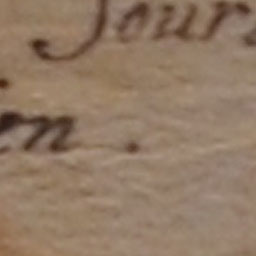 Jours
en .